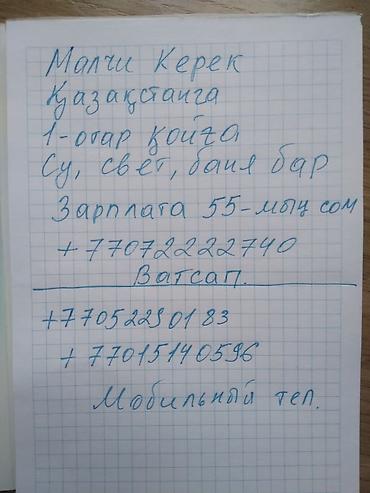 Малчи Керек
Қазақстанга
1-отар қойға
Су, свет, баня бар
Зарплата 55-мың сом
+77072222740
Ватсап.
+77052290183
+77015140596
Мобильный тел.